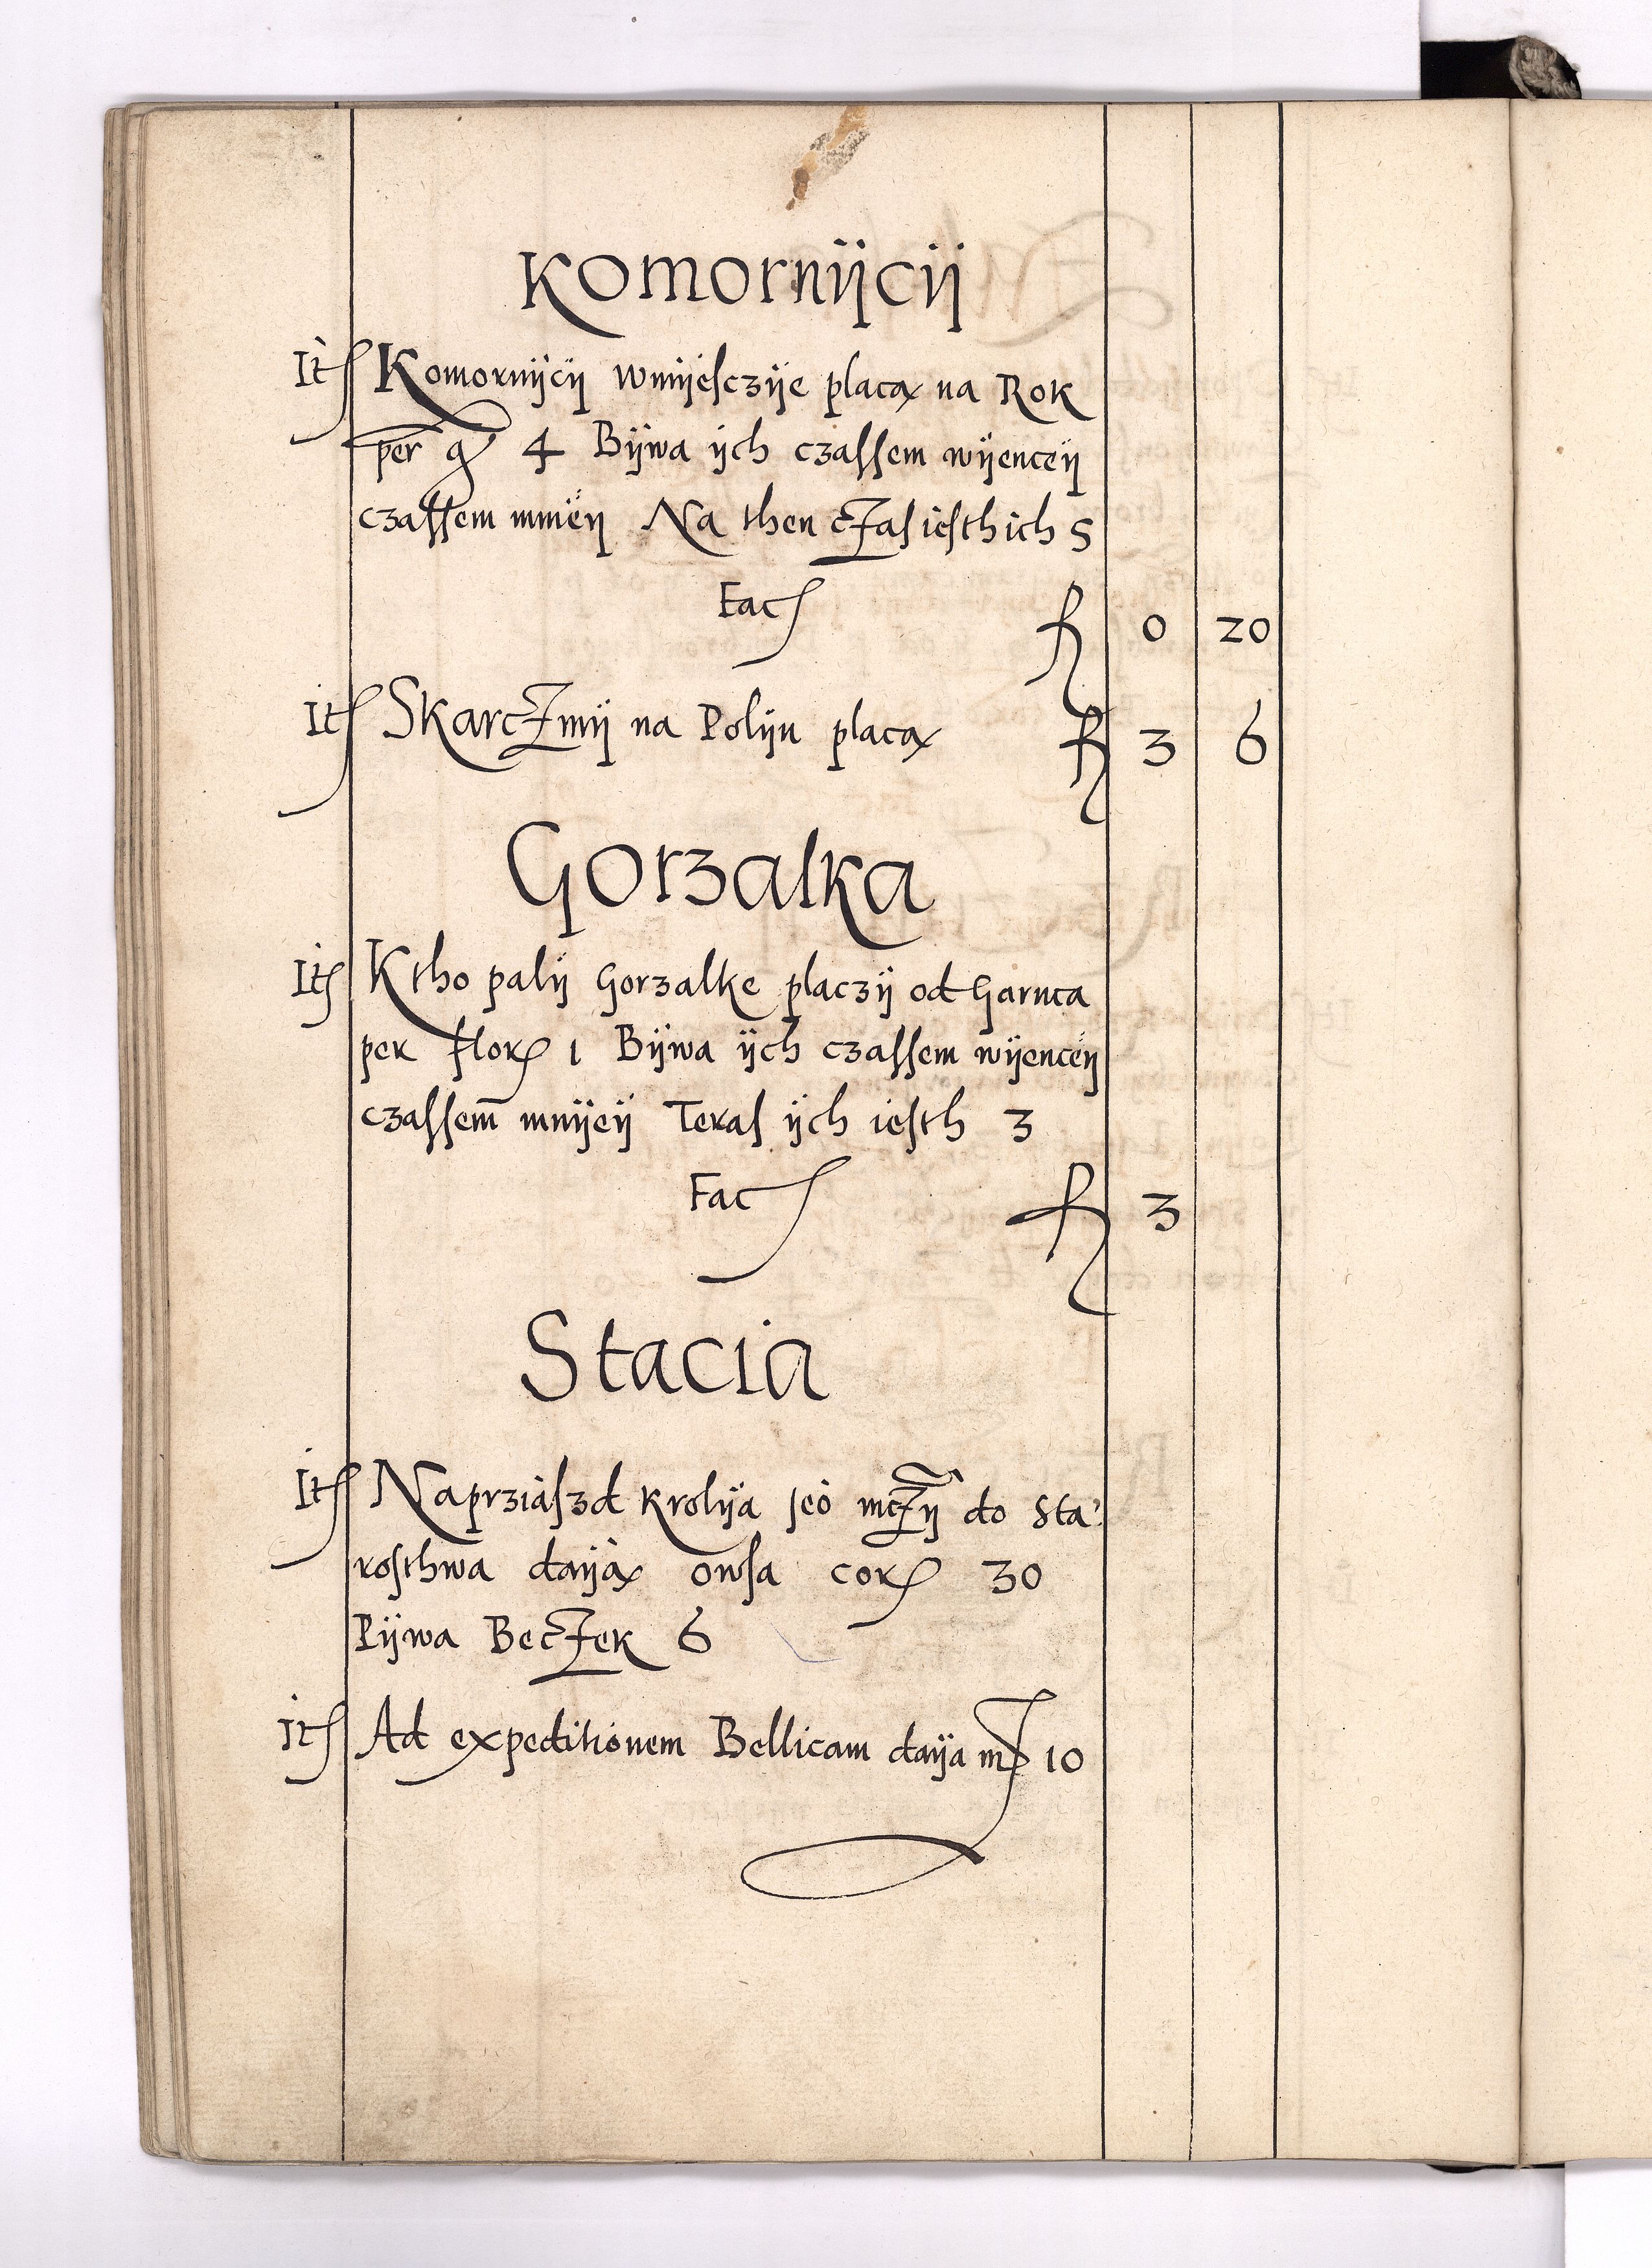 Komornÿcÿ
It Komornÿcÿ wmÿesczÿe placą na Rok
per g 4 Bÿwa ÿch czassem wÿenceÿ
czassem mnieÿ Na then cżas iesth ich 5
Fac f 0 20
It Skarcżmÿ na Polÿu placą f 3 6
Gorzalka
It Ktho palÿ Gorzalke placzÿ od Garnca
per flor 1 Bÿwa ÿch czassem wÿenceÿ
czassem̄ mnÿeÿ Teras ÿch iesth 3
Fac f 3
Stacia
It Na prziaszd krolÿa jeo mcżÿ do Sta
rosthwa daÿą owsa cor 30
Pÿwa Becżek 6
It Ad expeditionem Bellicam daÿa m 10